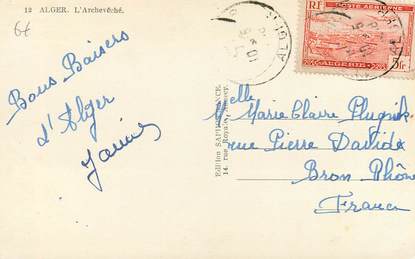 12 ALGER. L'Archevêché.
6f
Bons Baisers
d'Alger
Janine
Edition SAPHO
14, rue Royale, Annecy
RF POSTE AERIENNE
ALGERIE 5fr
Melle Marie Claire
rue Pierre
Bron Rhône
France